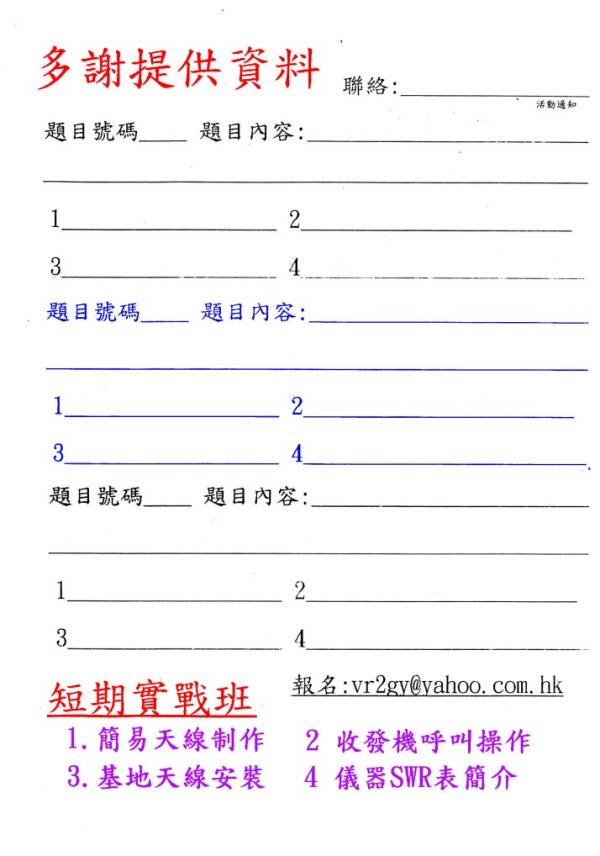 多謝提供資料 聯絡:____________
活動通知
題目號碼____ 題目內容:____________
____________
1____________ 2____________
3____________ 4____________
題目號碼____ 題目內容:____________
____________
1____________ 2____________
3____________ 4____________.
題目號碼____ 題目內容:____________
____________
1____________ 2____________
3____________ 4____________
短期實戰班 報名:vr2gy@yahoo.com.hk
1.簡易天線制作 2 收發機呼叫操作
3.基地天線安裝 4 儀器SWR表簡介